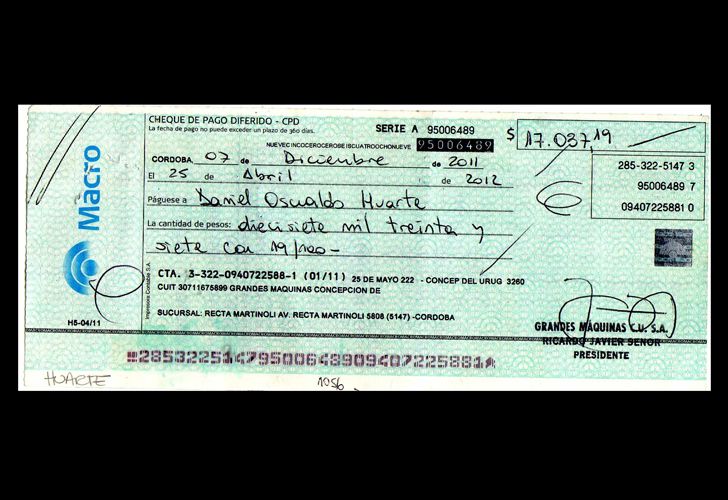 CHEQUE DE PAGO DIFERIDO - CPD
La fecha de pago no puede exceder un plazo de 360 días.
SERIE A 95006489
$ 17.037,19
NUEVECINCOCEROCEROSEISCUATROOCHONUEVE 95006489
285-322-5147 3
95006489 7
09407225881 0
CORDOBA, 07 de Diciembre de 2011
El 25 de Abril de 2012
Páguese a Daniel Osvaldo Huarte
La cantidad de pesos: diecisiete mil treinta y
siete con 19/100-
Macro
CTA. 3-322-0940722588-1 (01/11) 25 DE MAYO 222 - CONCEP DEL URUG 3260
CUIT 30711675899 GRANDES MAQUINAS CONCEPCION DE
SUCURSAL: RECTA MARTINOLI AV. RECTA MARTINOLI 5808 (5147) -CORDOBA
Impresora Contable S.A.
H5-04/11
GRANDES MAQUINAS C.U. S.A.
RICARDO JAVIER SENOR
PRESIDENTE
28532251479500648909407225881
HUARTE
1056